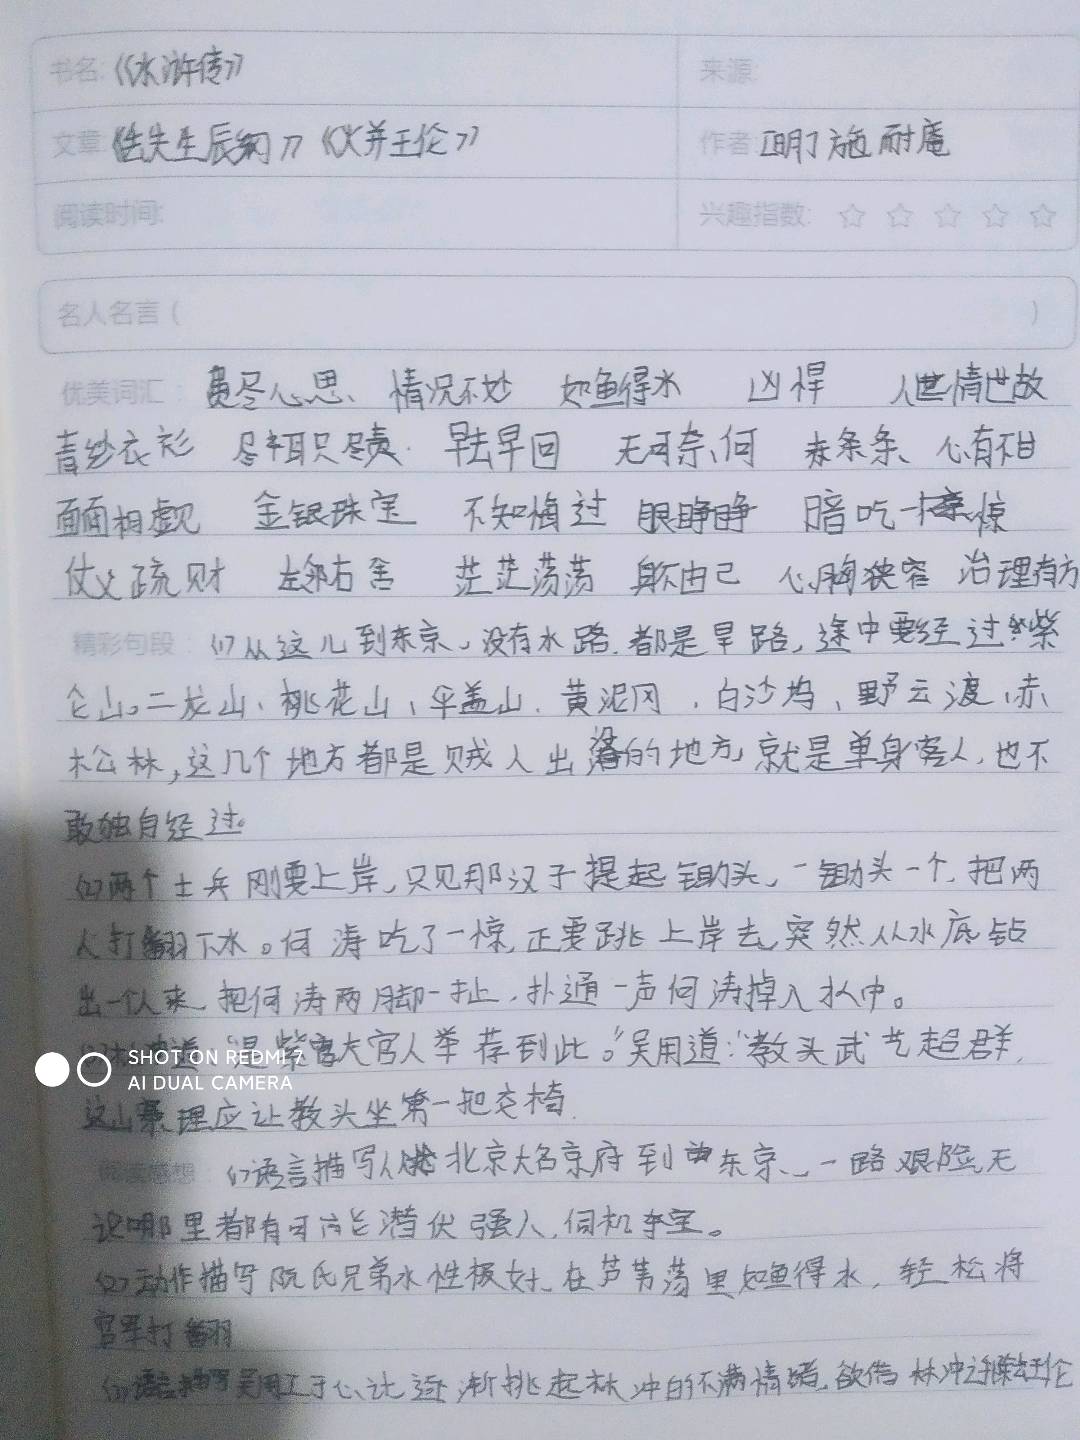 书名:《水浒传》 来源:
文章:《失生辰纲》《火并王伦》 作者:[明]施耐庵
阅读时间: 兴趣指数: ☆ ☆ ☆ ☆ ☆
名人名言( )
优美词汇: 费尽心思 情况不妙 如鱼得水 凶悍 人世情世故
青纱衣衫 尽职尽责 早去早回 无可奈何 赤条条 心有不甘
面面相觑 金银珠宝 不知悔过 眼睁睁 暗吃一惊
仗义疏财 左邻右舍 茫茫荡荡 身不由己 心胸狭窄 治理有方
精彩句段: (1)从这儿到东京、没有水路.都是旱路,途中要经过紫
仑山。二龙山、桃花山、伞盖山.黄泥冈、白沙坞、野云渡、赤
松林,这几个地方都是贼人出没的地方,就是单身客人,也不
敢独自经过。
(2)两个士兵刚要上岸,只见那汉子提起锄头,一锄头一个,把两
人打翻下水。何涛吃了一惊,正要跳上岸去,突然从水底钻
出一个人来,把何涛两脚一扯,扑通一声何涛掉入水中。
道"是柴大官人举荐到此。"吴用道:"教头武艺超群,
这山寨理应让教头坐第一把交椅.
阅读感想: (1)语言描写从北京大名府到东京、一路艰险,无
论哪里都有可能潜伏强人,伺机夺宝。
(2)动作描写阮氏兄弟水性极好,在芦苇荡里如鱼得水,轻松将
官军打翻
(3)语言描写吴用工于心计逐渐挑起林冲的不满情绪,欲借林冲王伦
SHOT ON REDMI 7
AI DUAL CAMERA